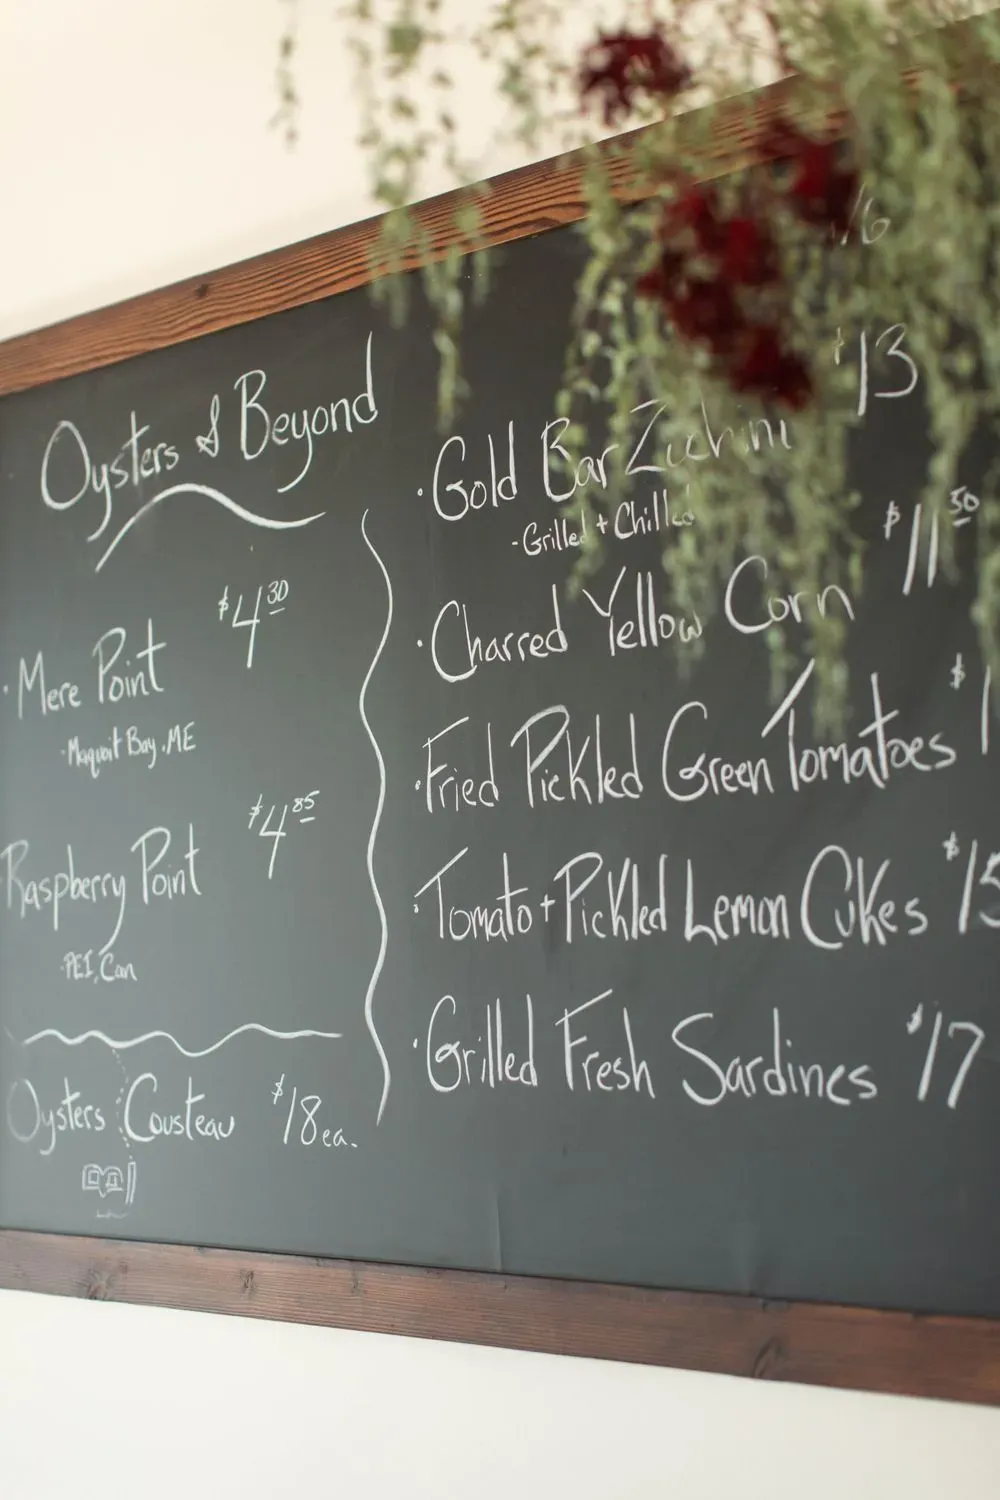 Oysters & Beyond
$4 30
· Mere Point
· Maquoit Bay, ME
$4 85
Raspberry Point
· PEI, Can
Oysters Cousteau $18 ea.
$13
· Gold Bar Zuchini
- Grilled + Chilled
$11 50
· Charred Yellow Corn
· Fried Pickled Green Tomatoes $1
· Tomato + Pickled Lemon Cukes $15
· Grilled Fresh Sardines $17